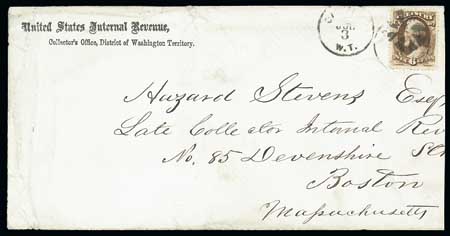 United States Internal Revenue,
Collector's Office, District of Washington Territory.
3
W.T.
Hazard Stevens Esq
Late Collector Internal Rev
No. 85 Devonshire St
Boston
Massachusetts